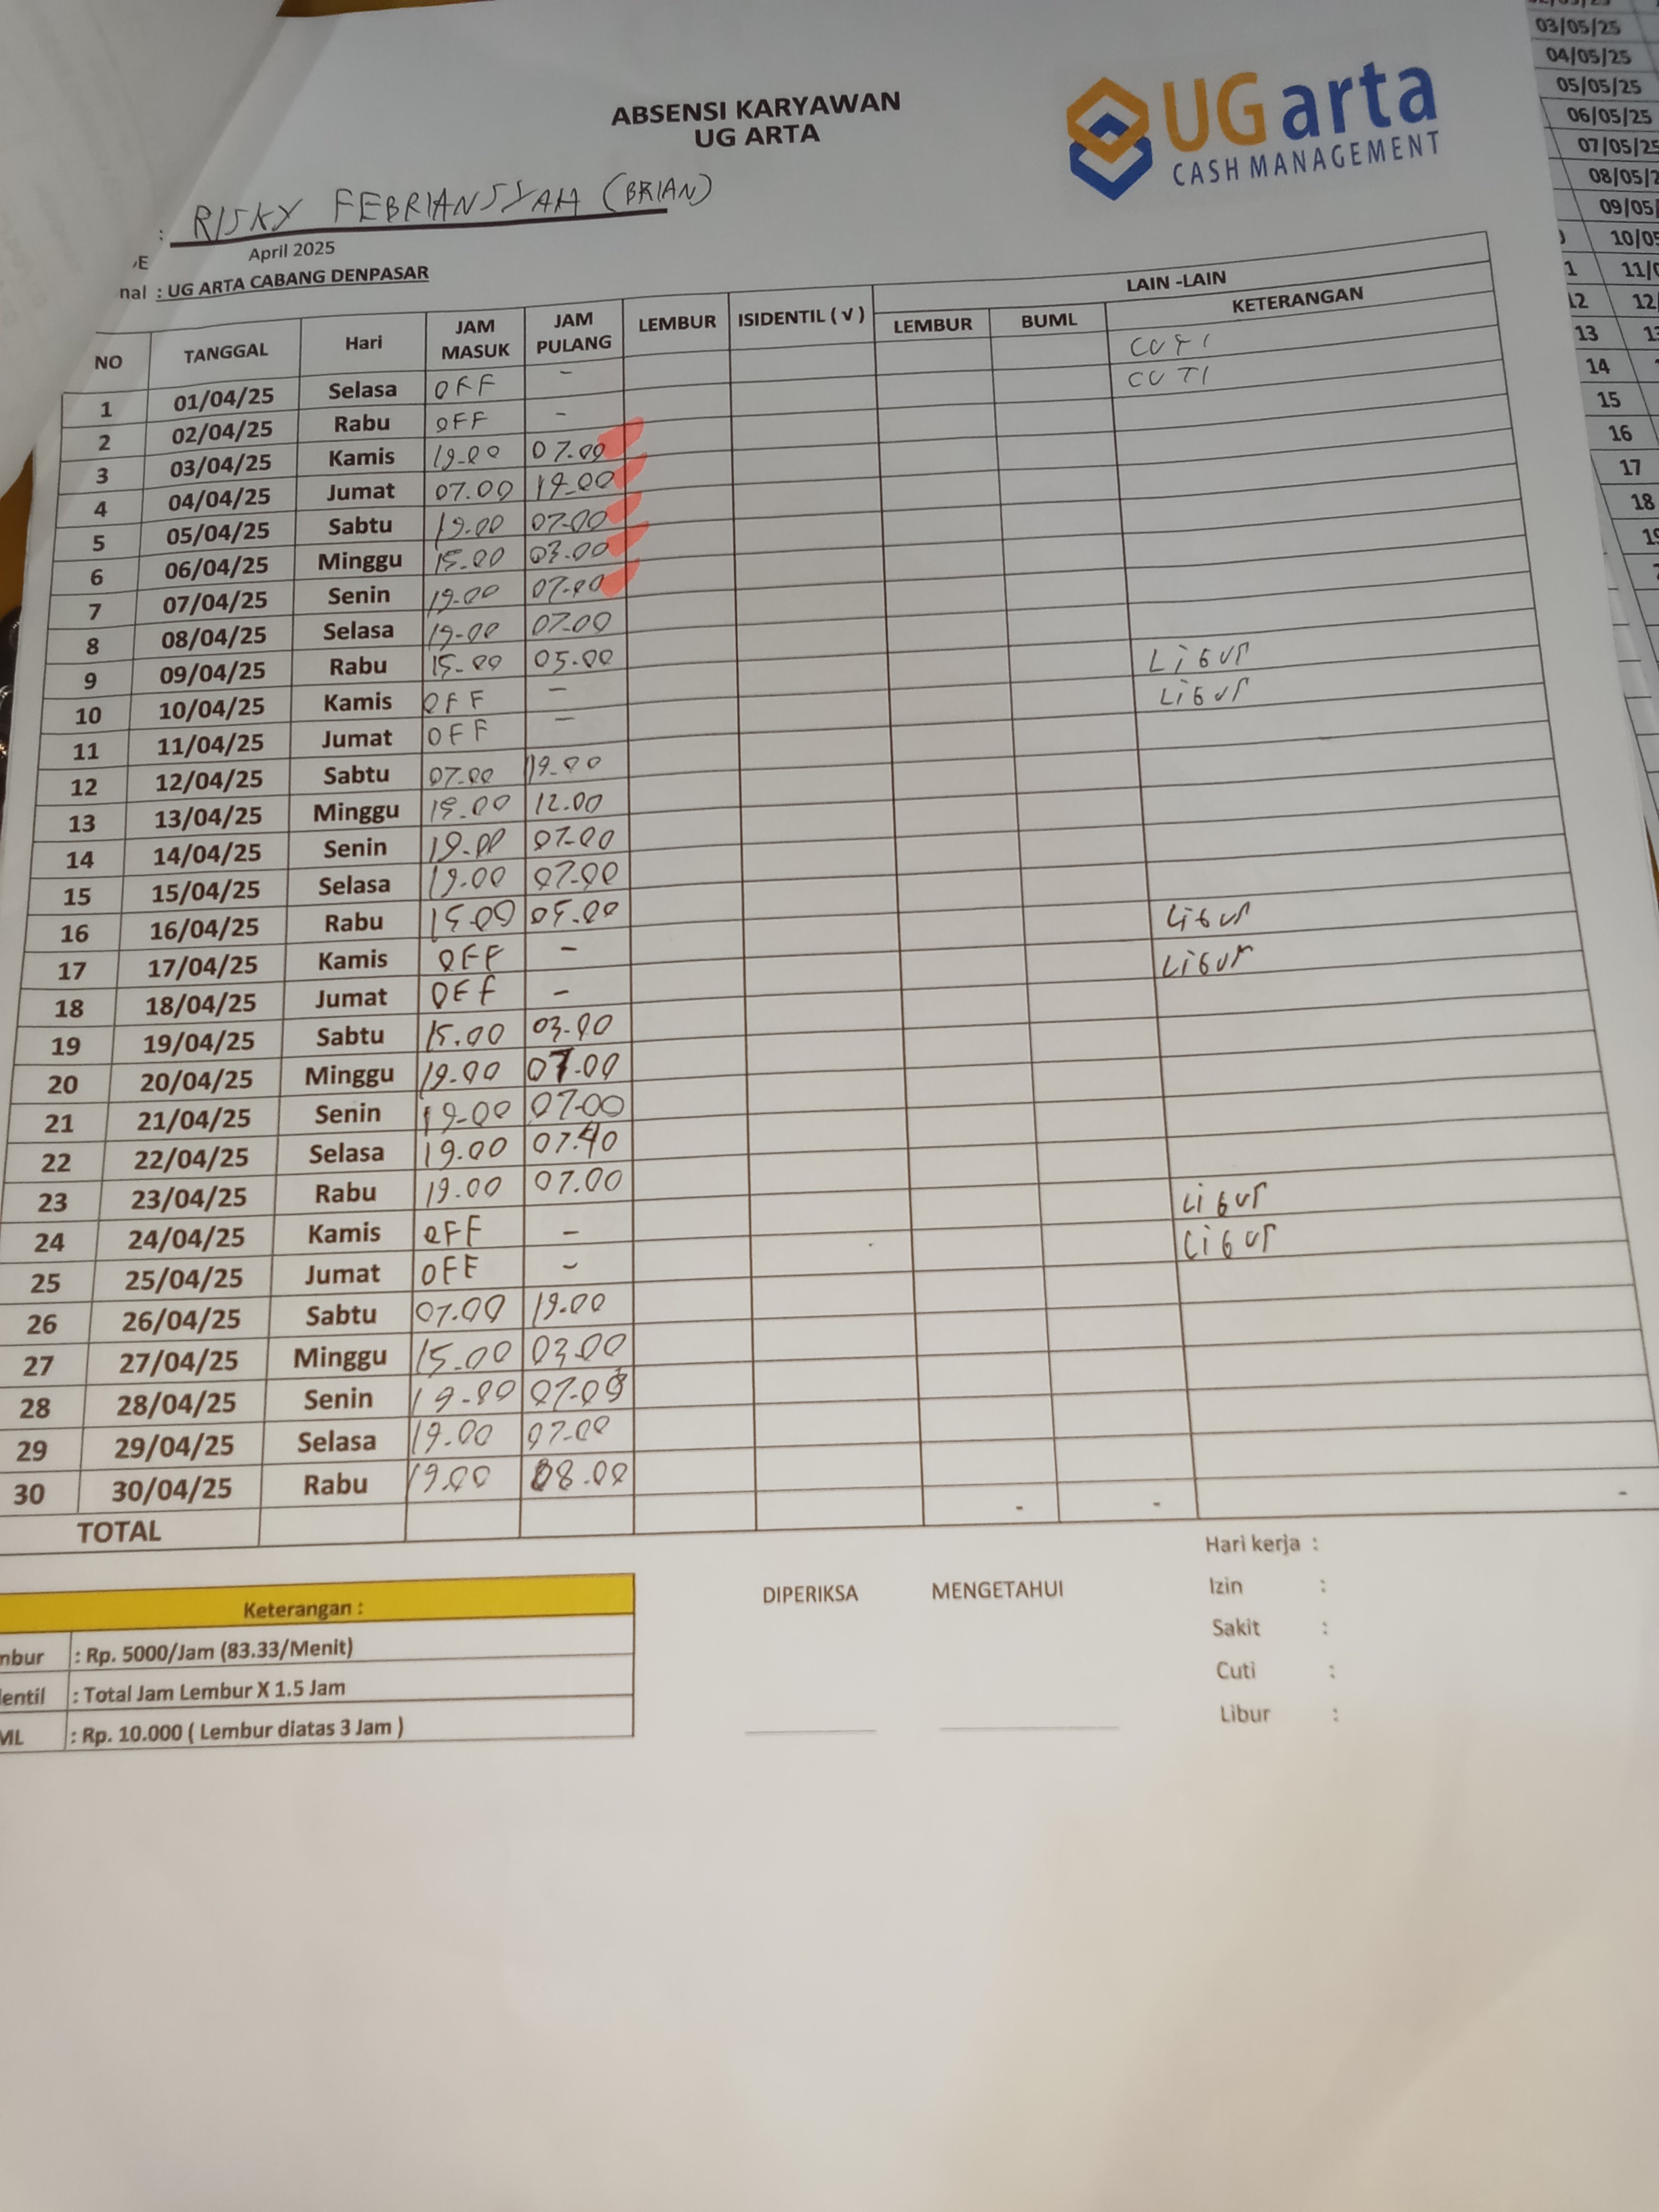 ABSENSI KARYAWAN
UG ARTA
UGarta
CASH MANAGEMENT
: RISKY FEBRIANSYAH (BRIAN)
E April 2025
nal : UG ARTA CABANG DENPASAR
NO TANGGAL Hari JAM MASUK JAM PULANG LEMBUR ISIDENTIL ( √ ) LAIN -LAIN
LEMBUR BUML KETERANGAN
1 01/04/25 Selasa OFF - CUTI
2 02/04/25 Rabu OFF - CUTI
3 03/04/25 Kamis 19-00 07.00
4 04/04/25 Jumat 07.00 19-00
5 05/04/25 Sabtu 19.00 07-00
6 06/04/25 Minggu 15.00 03.00
7 07/04/25 Senin 19-00 07-00
8 08/04/25 Selasa 19-00 07-00
9 09/04/25 Rabu 15-00 05.00
10 10/04/25 Kamis OFF - Libur
11 11/04/25 Jumat OFF - Libur
12 12/04/25 Sabtu 07.00 19.00
13 13/04/25 Minggu 12.00
14 14/04/25 Senin 19-00 07-00
15 15/04/25 Selasa 19.00 07-00
16 16/04/25 Rabu 15.00 05.00
17 17/04/25 Kamis OFF - Libur
18 18/04/25 Jumat OFF - Libur
19 19/04/25 Sabtu 15.00 03-00
20 20/04/25 Minggu 19.00 07-00
21 21/04/25 Senin 19-00 07-00
22 22/04/25 Selasa 19.00 07.40
23 23/04/25 Rabu 19.00 07.00
24 24/04/25 Kamis OFF - Libur
25 25/04/25 Jumat OFF - Libur
26 26/04/25 Sabtu 07.00 19.00
27 27/04/25 Minggu 15.00 03.00
28 28/04/25 Senin 19-00
29 29/04/25 Selasa 19.00 07-00
30 30/04/25 Rabu 19.00 08.00
TOTAL - - -
Keterangan :
mbur : Rp. 5000/Jam (83.33/Menit)
entil : Total Jam Lembur X 1.5 Jam
ML : Rp. 10.000 ( Lembur diatas 3 Jam )
DIPERIKSA MENGETAHUI
Hari kerja :
Izin :
Sakit :
Cuti :
Libur :
03/05/25
04/05/25
05/05/25
06/05/25
07/05/25
08/05/2
09/05/
10/05
1 11/0
12 12/
13 13
14
15
16
17
18
19